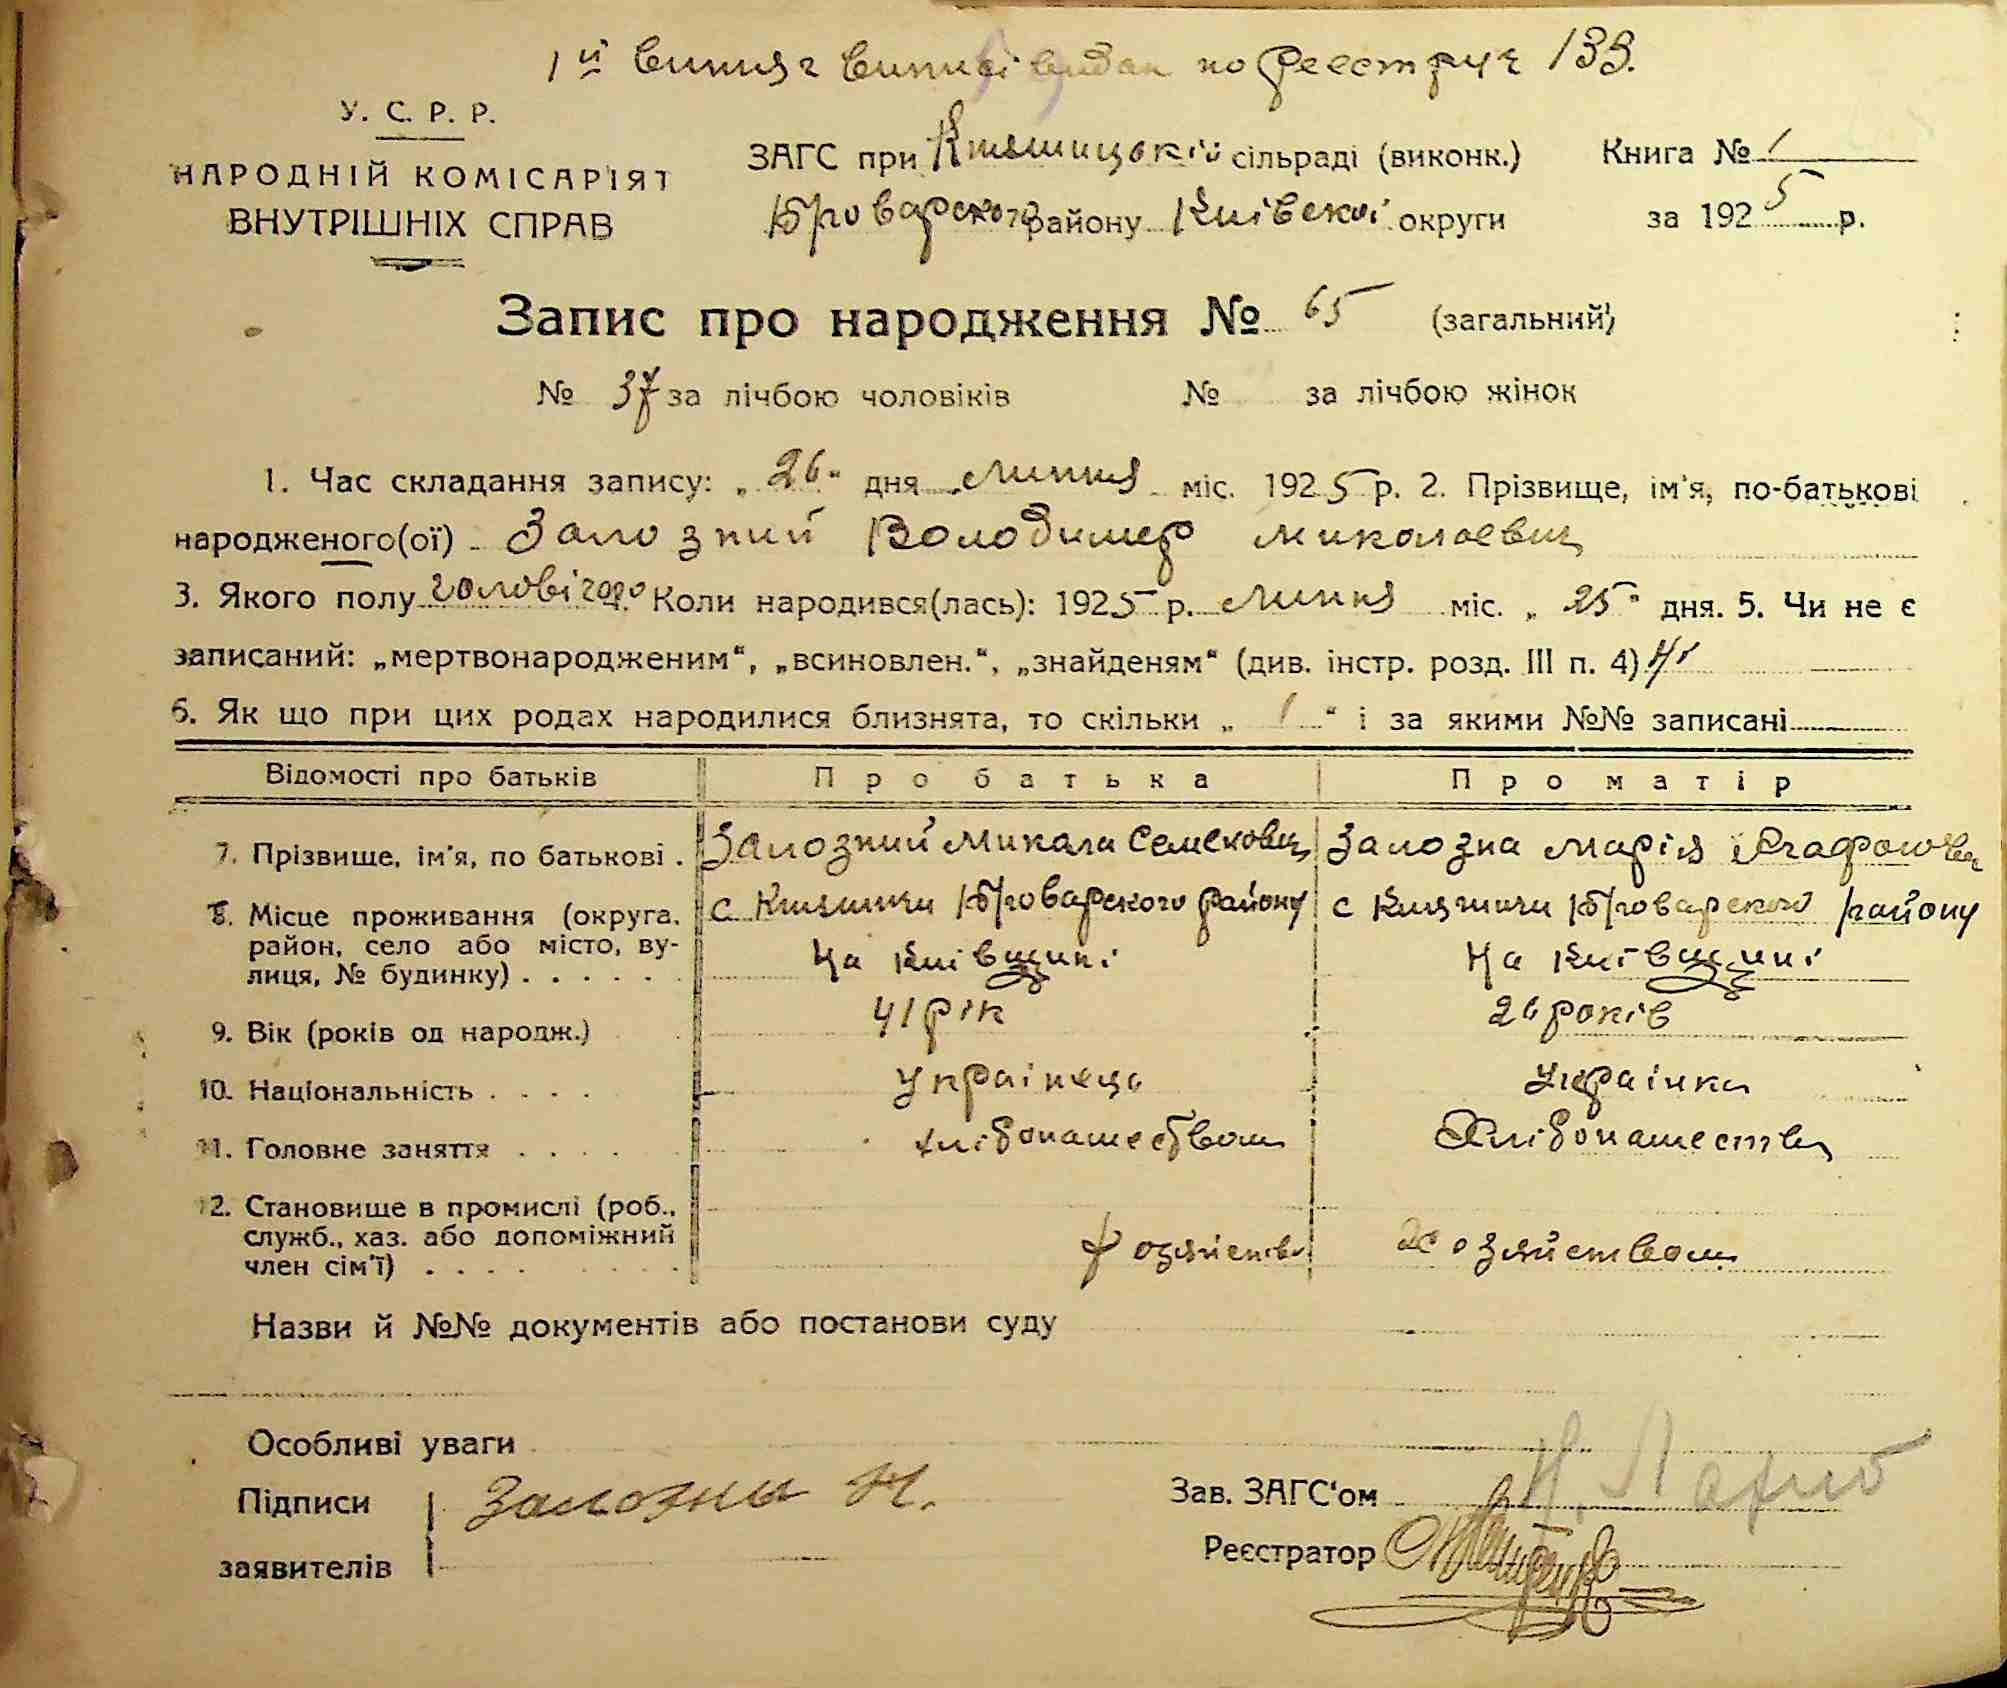 1й випис виписі видан по реєстру ч 133.
У. С. Р. Р.
НАРОДНІЙ КОМІСАРІЯТ
ВНУТРІШНІХ СПРАВ
ЗАГС при Княжицькій сільраді (виконк.) Книга № 1
Броварского району Київскої округи за 1925 р.
Запис про народження № 65 (загальний)
№ 37 за лічбою чоловіків № за лічбою жінок
1. Час складання запису: „26“ дня липня міс. 1925 р. 2. Прізвище, ім'я, по-батькові
народженого(ої) Залозний Володимер Миколаевич
3. Якого полу чоловічого Коли народився(лась): 1925 р. липня міс. „25“ дня. 5. Чи не є
записаний: „мертвонародженим“, „всиновлен.“, „знайденям“ (див. інстр. розд. III п. 4) Ні
6. Як що при цих родах народилися близнята, то скільки „ 1 “ і за якими №№ записані
Відомості про батьків Про батька Про матір
7. Прізвище, ім'я, по батькові . Залозний Микола Семенович Залозна Марія
8. Місце проживання (округа, район, село або місто, вулиця, № будинку) . . . . . .
с Княжичи Броварского району
на Київщині
с Княжичи Броварского району
на Київщині
9. Вік (років од народж.) 41 рік 26 років
10. Національність . . . . Українець Українка
11. Головне заняття . . . . хлібопашеством Хлібопашество
12. Становище в промислі (роб., служб., хаз. або допоміжний член сім'ї) . . . .
хозяйство хозяйством
Назви й №№ документів або постанови суду
Особливі уваги
Підписи Залозни М.
заявителів
Зав. ЗАГС'ом
Реєстратор